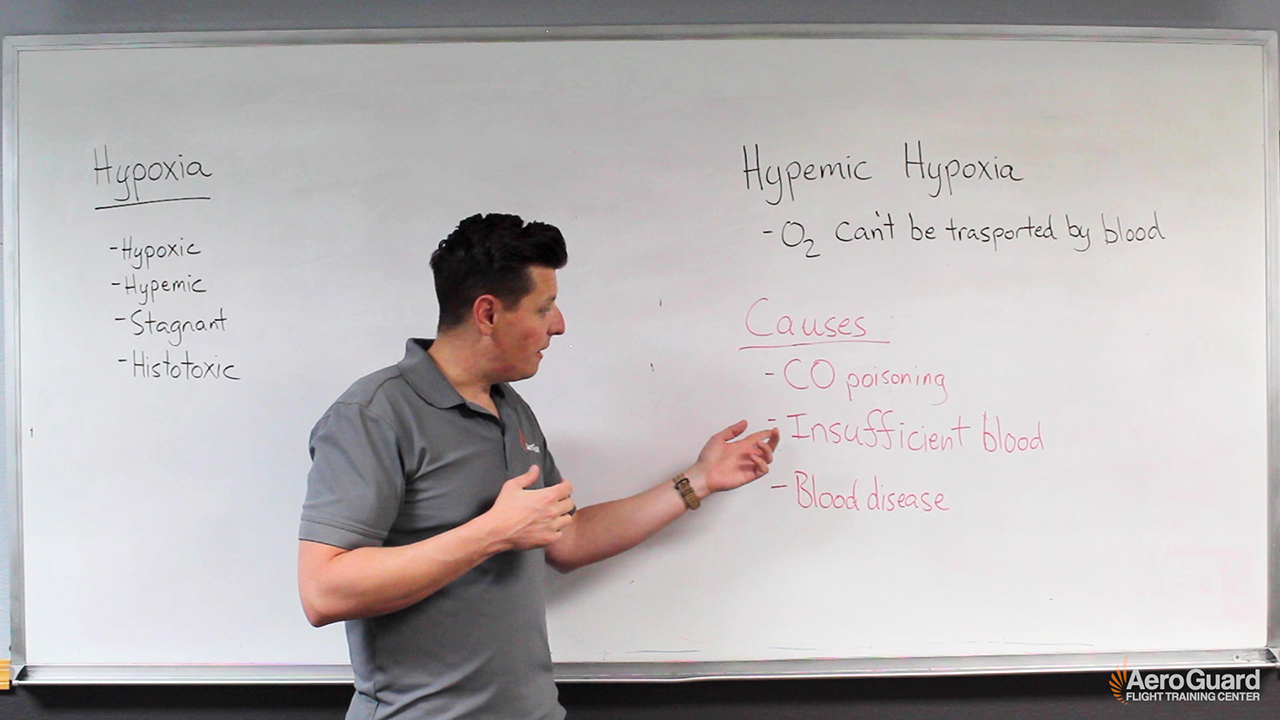 Hypoxia
-Hypoxic
-Hypemic
-Stagnant
-Histotoxic
Hypemic Hypoxia
-O₂ can't be trasported by blood
Causes
-CO poisoning
-Insufficient blood
-Blood disease
AeroGuard
AeroGuard
FLIGHT TRAINING CENTER